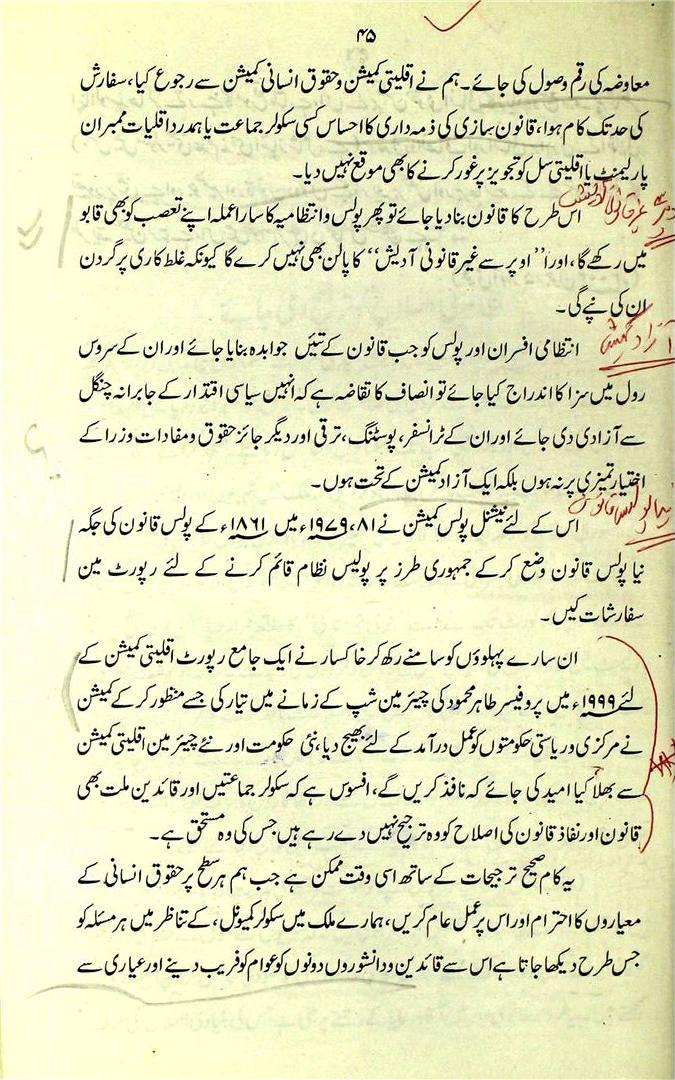 ۴۵
معاوضہ کی رقم وصول کی جائے۔ ہم نے اقلیتی کمیشن و حقوق انسانی کمیشن سے رجوع کیا، سفارش
کی حد تک کام ہوا، قانون سازی کی ذمہ داری کا احساس کسی سکولر جماعت یا ہمدرد اقلیات ممبران
پارلیمنٹ یا اقلیتی سل کو تجویز پر غور کرنے کا بھی موقع نہیں دیا۔
اس طرح کا قانون بنا دیا جائے تو پھر پولس و انتظامیہ کا سارا عملہ اپنے تعصب کو بھی قابو
میں رکھے گا، اور ا’’اوپر سے غیر قانونی آدیش‘‘ کا پالن بھی نہیں کرے گا کیونکہ غلط کاری پر گردن
ان کی نپے گی۔
آزاد کمیشن
انتظامی افسران اور پولس کو جب قانون کے تئیں جوابدہ بنایا جائے اور ان کے سروس
رول میں سزا کا اندراج کیا جائے تو انصاف کا تقاضہ ہے کہ انہیں سیاسی اقتدار کے جابرانہ چنگل
سے آزادی دی جائے اور ان کے ٹرانسفر، پوسٹنگ، ترقی اور دیگر جائز حقوق و مفادات وزرا کے
اختیار تمیزی پر نہ ہوں بلکہ ایک آزاد کمیشن کے تحت ہوں۔
نیا پولیس قانون
اس کے لئے نیشنل پولس کمیشن نے ۸۱،۱۹۷۹ء میں ۱۸۶۱ء کے پولس قانون کی جگہ
نیا پولس قانون وضع کر کے جمہوری طرز پر پولیس نظام قائم کرنے کے لئے رپورٹ مین
سفارشات کیں۔
ان سارے پہلوؤں کو سامنے رکھ کر خاکسار نے ایک جامع رپورٹ اقلیتی کمیشن کے
لئے ۱۹۹۹ء میں پروفیسر طاہر محمود کی چیئرمین شپ کے زمانے میں تیار کی جسے منظور کر کے کمیشن
نے مرکزی و ریاستی حکومتوں کو عمل درآمد کے لئے بھیج دیا، نئی حکومت اور نئے چیئرمین اقلیتی کمیشن
سے بھلا کیا امید کی جائے کہ نافذ کریں گے، افسوس ہے کہ سکولر جماعتیں اور قائدین ملت بھی
قانون اور نفاذ قانون کی اصلاح کو وہ ترجیح نہیں دے رہے ہیں جس کی وہ مستحق ہے۔
یہ کام صحیح ترجیحات کے ساتھ اسی وقت ممکن ہے جب ہم ہر سطح پر حقوق انسانی کے
معیاروں کا احترام اور اس پر عمل عام کریں، ہمارے ملک میں سکولر کمیونل، کے تناظر میں ہر مسئلہ کو
جس طرح دیکھا جاتا ہے اس سے قائدین و دانشوروں دونوں کو عوام کو فریب دینے اور عیاری سے